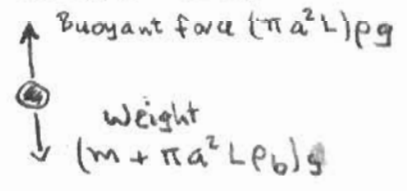 Buoyant force (πa²L)ρg
Weight
(m + πa²Lρb)g